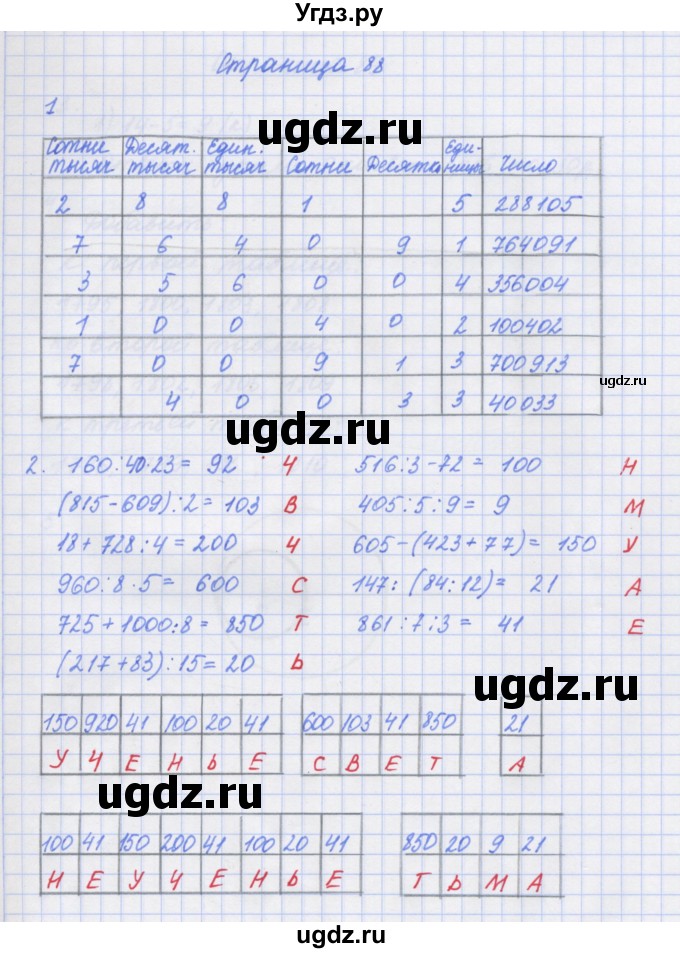 Угдз.ру
Страница 88
1
Сотни тысяч Десят. тысяч Един. тысяч Сотни Десятки Еди-ницы Число
2 8 8 1 5 288105
7 6 4 0 9 1 764091
3 5 6 0 0 4 356004
1 0 0 4 0 2 100402
7 0 0 9 1 3 700913
4 0 0 3 3 40033
2. 160:40·23= 92 Ч 516:3-72= 100 Н
(815-609):2=103 В 405:5:9= 9 М
18+728:4=200 Ч 605-(423+77)= 150 У
960:8·5= 600 С 147:(84:12)= 21 А
725+1000:8= 850 Т 861:7:3= 41 Е
(217+83):15=20 Ь
150 920 41 100 20 41 600 103 41 850 21
У Ч Е Н Ь Е С В Е Т А
100 41 150 200 41 100 20 41 850 20 9 21
Н Е У Ч Е Н Ь Е Т Ь М А
ugdz.ru
ugdz.ru
ugdz.ru
ugdz.ru
ugdz.ru
ugdz.ru
ugdz.ru
ugdz.ru